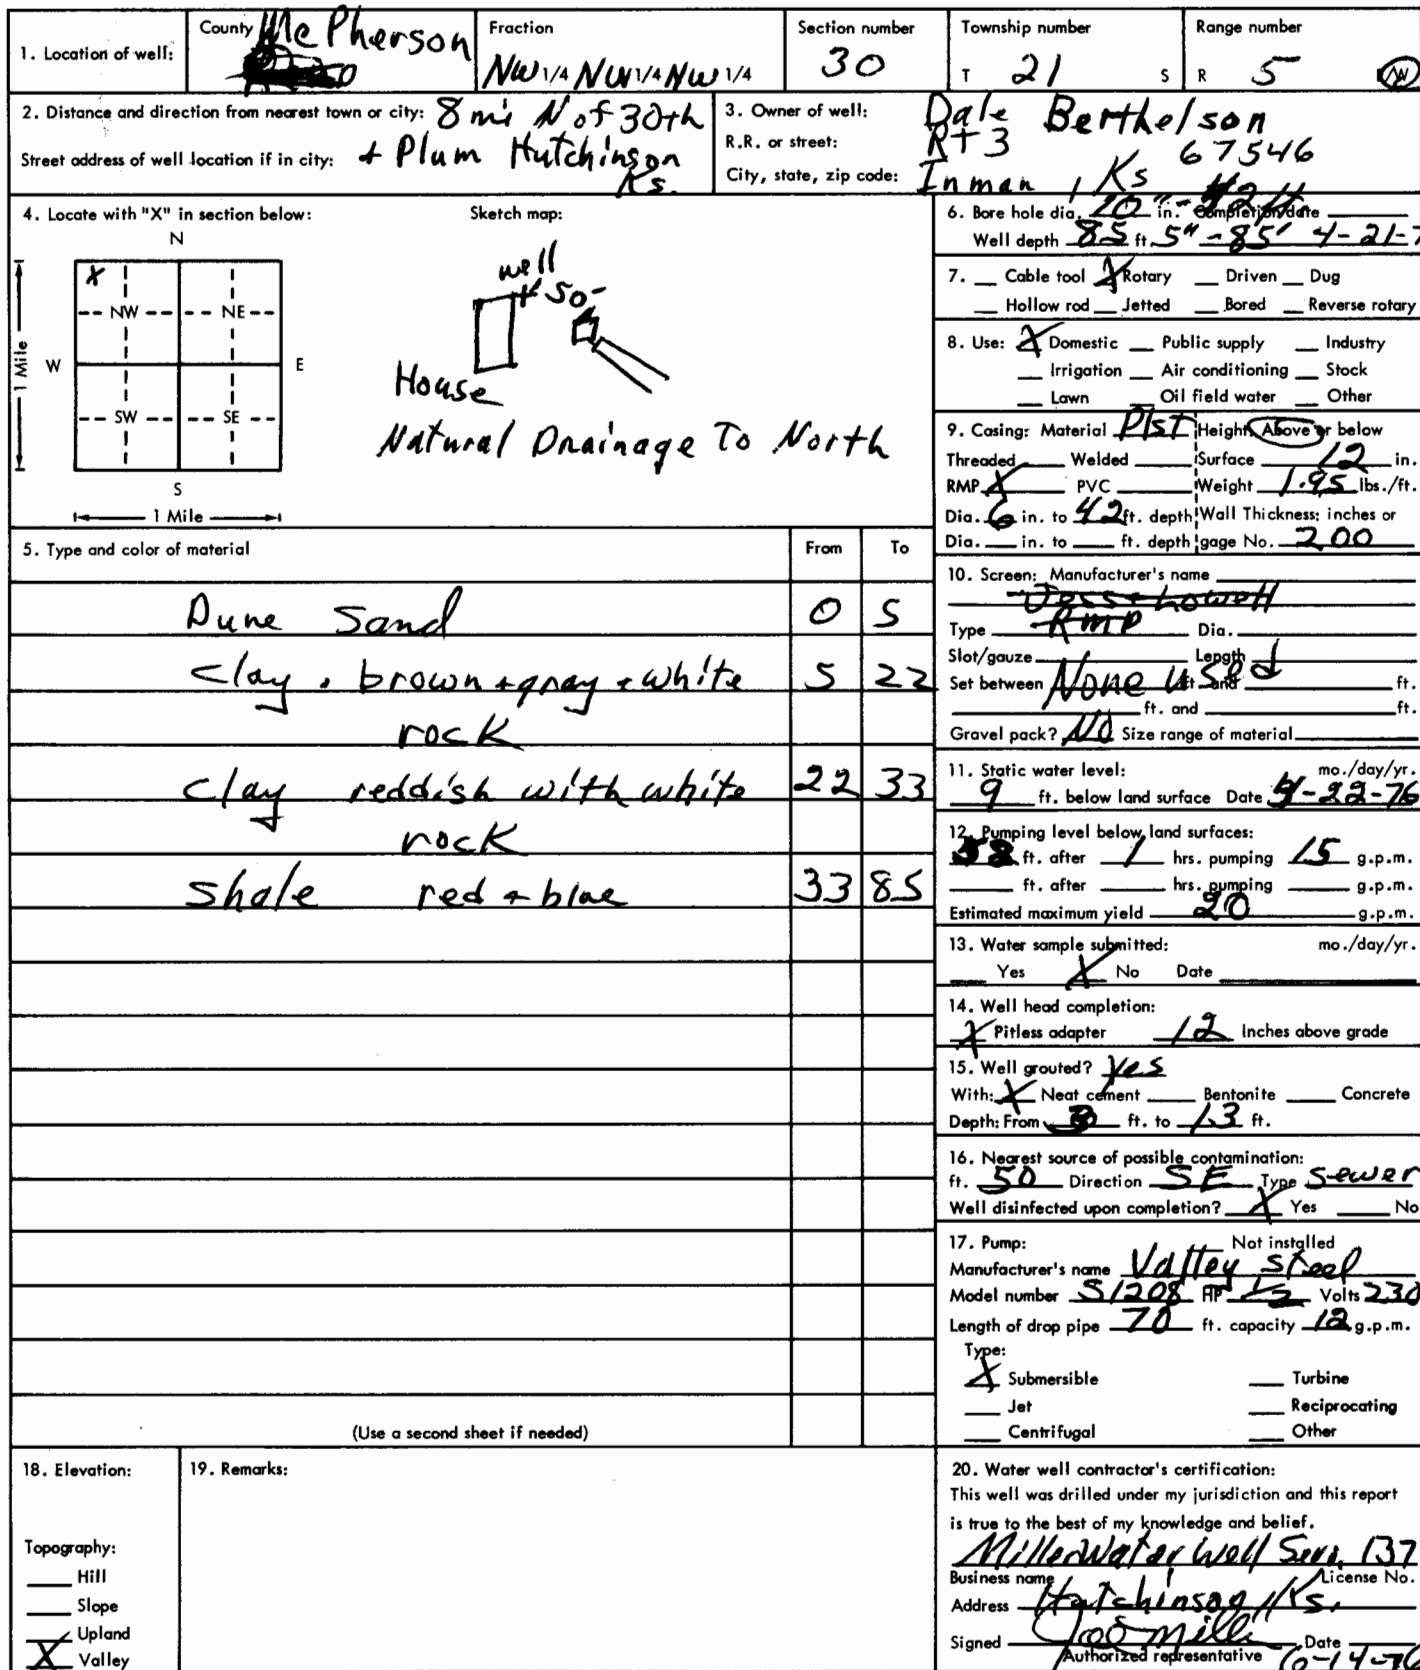 1. Location of well: County McPherson Fraction NW 1/4 NW 1/4 NW 1/4 Section number 30 Township number T 21 S Range number R 5 W
2. Distance and direction from nearest town or city: 8 mi N of 30th
Street address of well location if in city: + Plum Hutchinson
Ks.
3. Owner of well: Dale Berthelson
R.R. or street: Rt 3
City, state, zip code: Inman, Ks 67546
4. Locate with "X" in section below:
N
X
NW NE
W E
SW SE
S
1 Mile
1 Mile
Sketch map:
well
50-
House
Natural Drainage To North
5. Type and color of material From To
Dune Sand 0 5
clay. brown + gray + white 5 22
rock
clay reddish with white 22 33
rock
shale red + blue 33 85
(Use a second sheet if needed)
6. Bore hole dia. 10" in. - 42 ft Completion date
Well depth 85 ft. 5" - 85' 4-21-7
7. Cable tool X Rotary Driven Dug
Hollow rod Jetted Bored Reverse rotary
8. Use: X Domestic Public supply Industry
Irrigation Air conditioning Stock
Lawn Oil field water Other
9. Casing: Material Plst Height: Above or below
Threaded Welded Surface 12 in.
RMP X PVC Weight 1.95 lbs./ft.
Dia. 6 in. to 42 ft. depth Wall Thickness: inches or
Dia. in. to ft. depth gage No. 200
10. Screen: Manufacturer's name
Jess + Lowell
Type RMP Dia.
Slot/gauze Length
Set between None used ft. and ft.
ft. and ft.
Gravel pack? No Size range of material
11. Static water level: mo./day/yr.
9 ft. below land surface Date 4-22-76
12. Pumping level below land surfaces:
ft. after 1 hrs. pumping 15 g.p.m.
ft. after hrs. pumping g.p.m.
Estimated maximum yield 20 g.p.m.
13. Water sample submitted: mo./day/yr.
Yes X No Date
14. Well head completion:
X Pitless adapter 12 Inches above grade
15. Well grouted? yes
With: X Neat cement Bentonite Concrete
Depth: From ft. to 13 ft.
16. Nearest source of possible contamination:
ft. 50 Direction SE Type sewer
Well disinfected upon completion? X Yes No
17. Pump: Not installed
Manufacturer's name Valley Steel
Model number S1208 HP 1/2 Volts 230
Length of drop pipe 70 ft. capacity 12 g.p.m.
Type:
X Submersible Turbine
Jet Reciprocating
Centrifugal Other
18. Elevation:
Topography:
Hill
Slope
Upland
X Valley
19. Remarks:
20. Water well contractor's certification:
This well was drilled under my jurisdiction and this report
is true to the best of my knowledge and belief.
Miller Water Well Serv. 137
Business name License No.
Address Hutchinson Ks.
Signed Joe Miller Date
Authorized representative 6-14-76